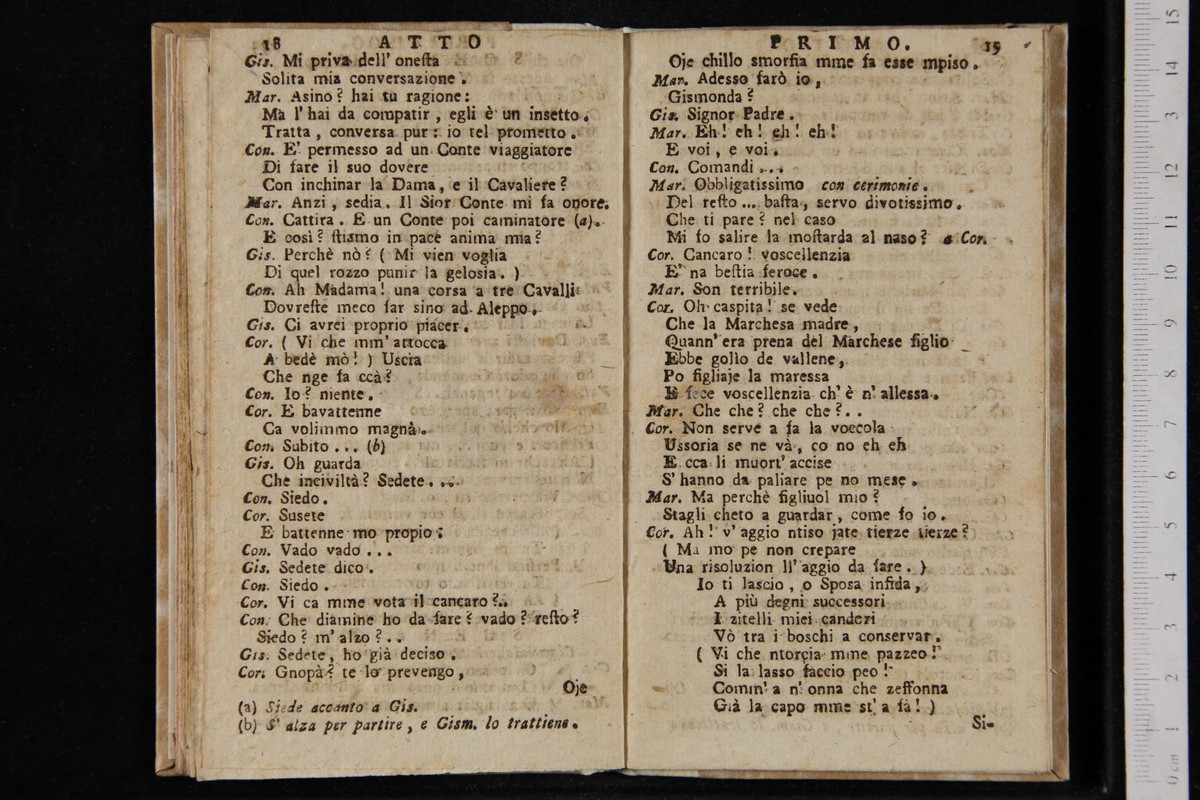 18 ATTO
Gis. Mi priva dell' onesta
Solita mia conversazione.
Mar. Asino? hai tu ragione:
Ma l'hai da compatir, egli è un insetto.
Tratta, conversa pur: io tel prometto.
Con. E' permesso ad un Conte viaggiatore
Di fare il suo dovere
Con inchinar la Dama, e il Cavaliere?
Mar. Anzi, sedia. Il Sior Conte mi fa onore.
Con. Cattira. E un Conte poi caminatore (a).
E così? stiamo in pace anima mia?
Gis. Perchè nò? ( Mi vien voglia
Di quel rozzo punir la gelosia. )
Con. Ah Madama! una corsa a tre Cavalli
Dovreste meco far sino ad Aleppo.
Gis. Ci avrei proprio piacer.
Cor. ( Vi che mm' attocca
A bedè mò! ) Uscia
Che nge fa ccà?
Con. Io? niente.
Cor. E bavattenne
Ca volimmo magnà.
Con. Subito... (b)
Gis. Oh guarda
Che inciviltà? Sedete...
Con. Siedo.
Cor. Susete
E battenne mo propio;
Con. Vado vado...
Gis. Sedete dico.
Con. Siedo.
Cor. Vi ca mme vota il cancaro?..
Con. Che diamine ho da fare? vado? resto?
Siedo? m' alzo?..
Gis. Sedete, ho già deciso.
Cor. Gnopà? te lo prevengo,
Oje
(a) Siede accanto a Gis.
(b) S' alza per partire, e Gism. lo trattiene.
PRIMO. 19
Oje chillo smorfia mme fa esse mpiso.
Mar. Adesso farò io,
Gismonda?
Gis. Signor Padre.
Mar. Eh! eh! eh! eh!
E voi, e voi.
Con. Comandi...
Mar. Obbligatissimo con cerimonie.
Del resto... basta, servo divotissimo.
Che ti pare? nel caso
Mi fo salire la mostarda al naso? a Cor.
Cor. Cancaro! voscellenzia
E' na bestia feroce.
Mar. Son terribile.
Cor. Oh caspita! se vede
Che la Marchesa madre,
Quann' era prena del Marchese figlio
Ebbe golìo de vallene,
Po figliaje la maressa
E fece voscellenzia ch' è n' allessa.
Mar. Che che? che che?..
Cor. Non serve a fa la voccola
Ussoria se ne và, co no eh eh
E cca li muort' accise
S' hanno da paliare pe no mese.
Mar. Ma perchè figliuol mio?
Stagli cheto a guardar, come fo io.
Cor. Ah! v' aggio ntiso jate tierze tierze?
( Ma mo pe non crepare
Una risoluzion ll' aggio da fare. )
Io ti lascio, o Sposa infida,
A più degni successori
I zitelli miei canderi
Vò tra i boschi a conservar.
( Vi che ntorcia mme pazzeo!
Si la lasso faccio peo!
Comm' a n' onna che zeffonna
Già la capo mme st' a fà! )
Si-